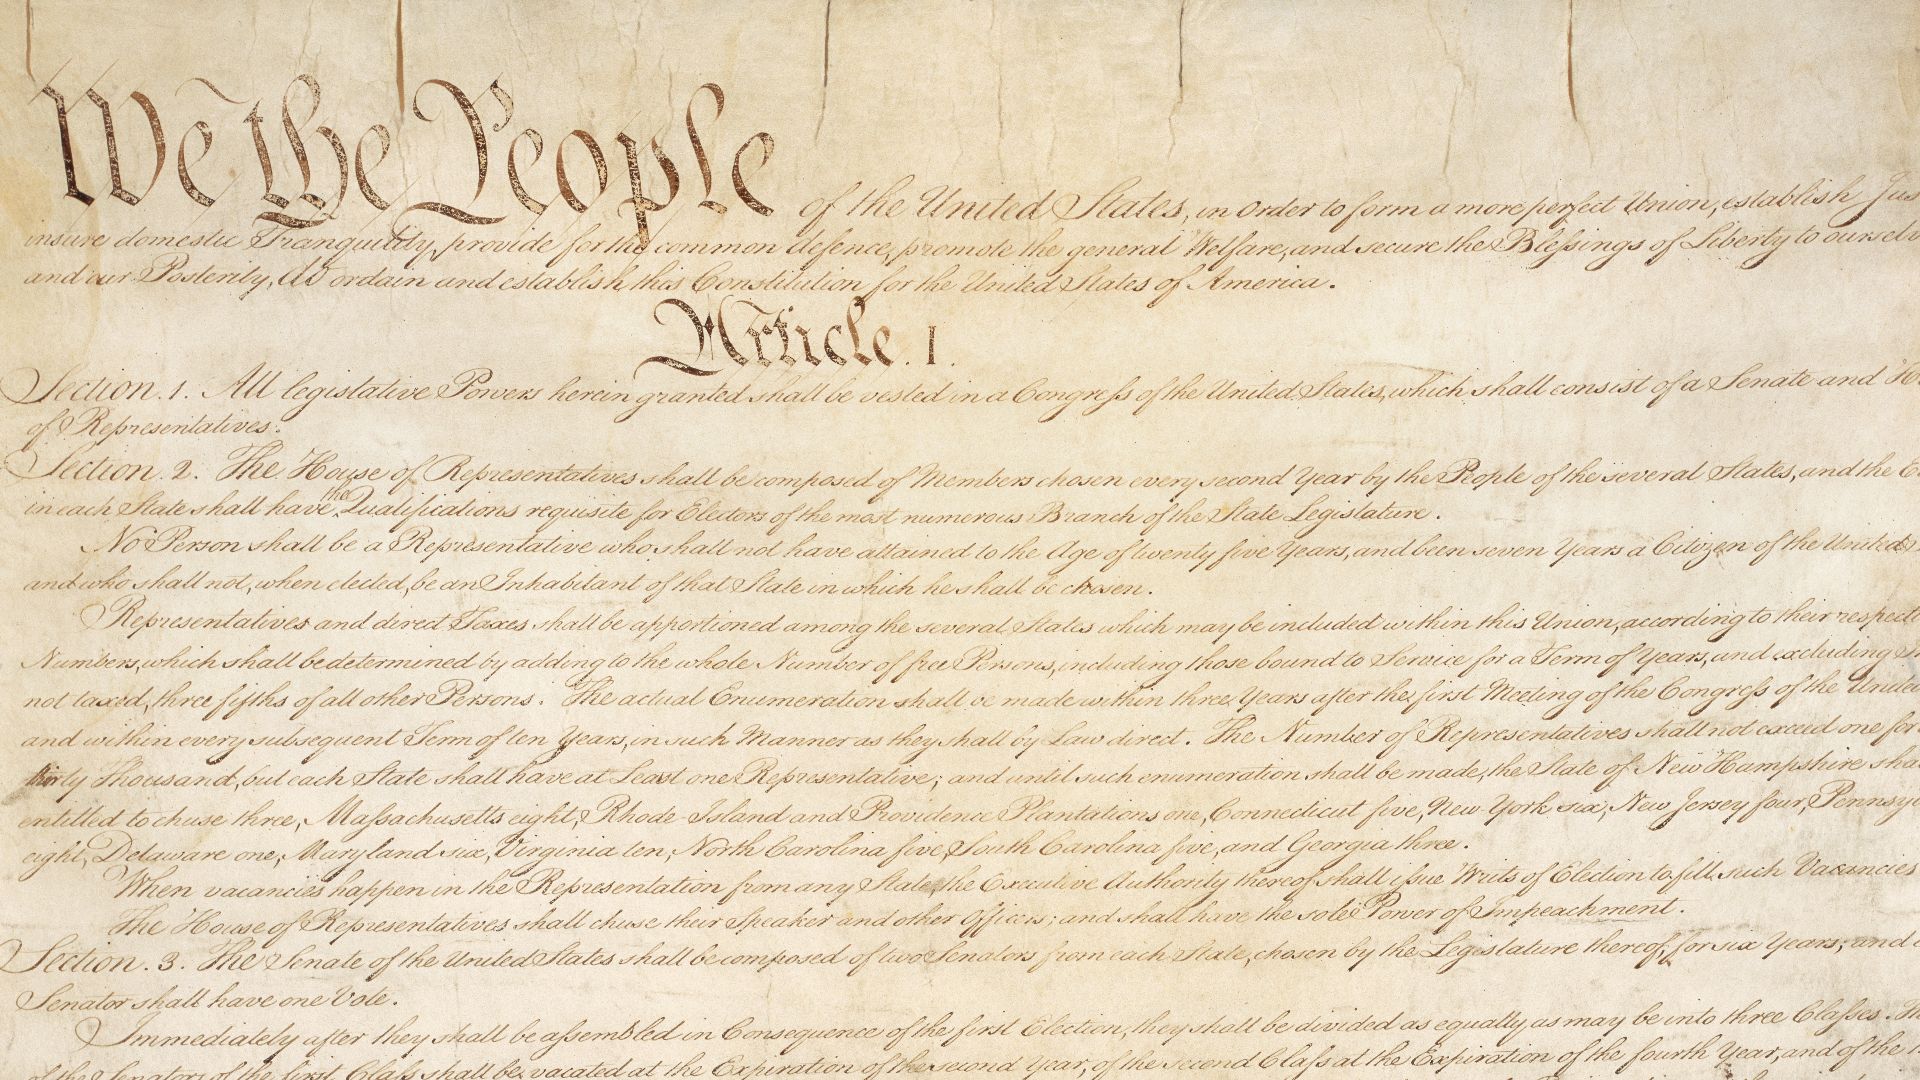 We the People of the United States, in Order to form a more perfect Union, establish Jus
insure domestic Tranquility, provide for the common defence, promote the general Welfare, and secure the Blessings of Liberty to ourselv
and our Posterity, do ordain and establish this Constitution for the United States of America.
Article. I.
Section. 1. All legislative Powers herein granted shall be vested in a Congress of the United States, which shall consist of a Senate and Ho
of Representatives.
Section. 2. The House of Representatives shall be composed of Members chosen every second Year by the People of the several States, and the E
in each State shall have the Qualifications requisite for Electors of the most numerous Branch of the State Legislature.
No Person shall be a Representative who shall not have attained to the Age of twenty five Years, and been seven Years a Citizen of the United
and who shall not, when elected, be an Inhabitant of that State in which he shall be chosen.
Representatives and direct Taxes shall be apportioned among the several States which may be included within this Union, according to their respecti
Numbers, which shall be determined by adding to the whole Number of free Persons, including those bound to Service for a Term of Years, and excluding
not taxed, three fifths of all other Persons. The actual Enumeration shall be made within three Years after the first Meeting of the Congress of the United
and within every subsequent Term of ten Years, in such Manner as they shall by Law direct. The Number of Representatives shall not exceed one for
thirty Thousand, but each State shall have at Least one Representative; and until such enumeration shall be made, the State of New Hampshire sha
entitled to chuse three, Massachusetts eight, Rhode-Island and Providence Plantations one, Connecticut five, New-York six, New Jersey four, Pennsyl
eight, Delaware one, Maryland six, Virginia ten, North Carolina five, South Carolina five, and Georgia three.
When vacancies happen in the Representation from any State, the Executive Authority thereof shall issue Writs of Election to fill such Vacancies
The House of Representatives shall chuse their Speaker and other Officers; and shall have the sole Power of Impeachment.
Section. 3. The Senate of the United States shall be composed of two Senators from each State, chosen by the Legislature thereof, for six Years; and
Senator shall have one Vote.
Immediately after they shall be assembled in Consequence of the first Election, they shall be divided as equally as may be into three Classes. The
of the Senators of the first Class shall be vacated at the Expiration of the second Year, of the second Class at the Expiration of the fourth Year, and of the